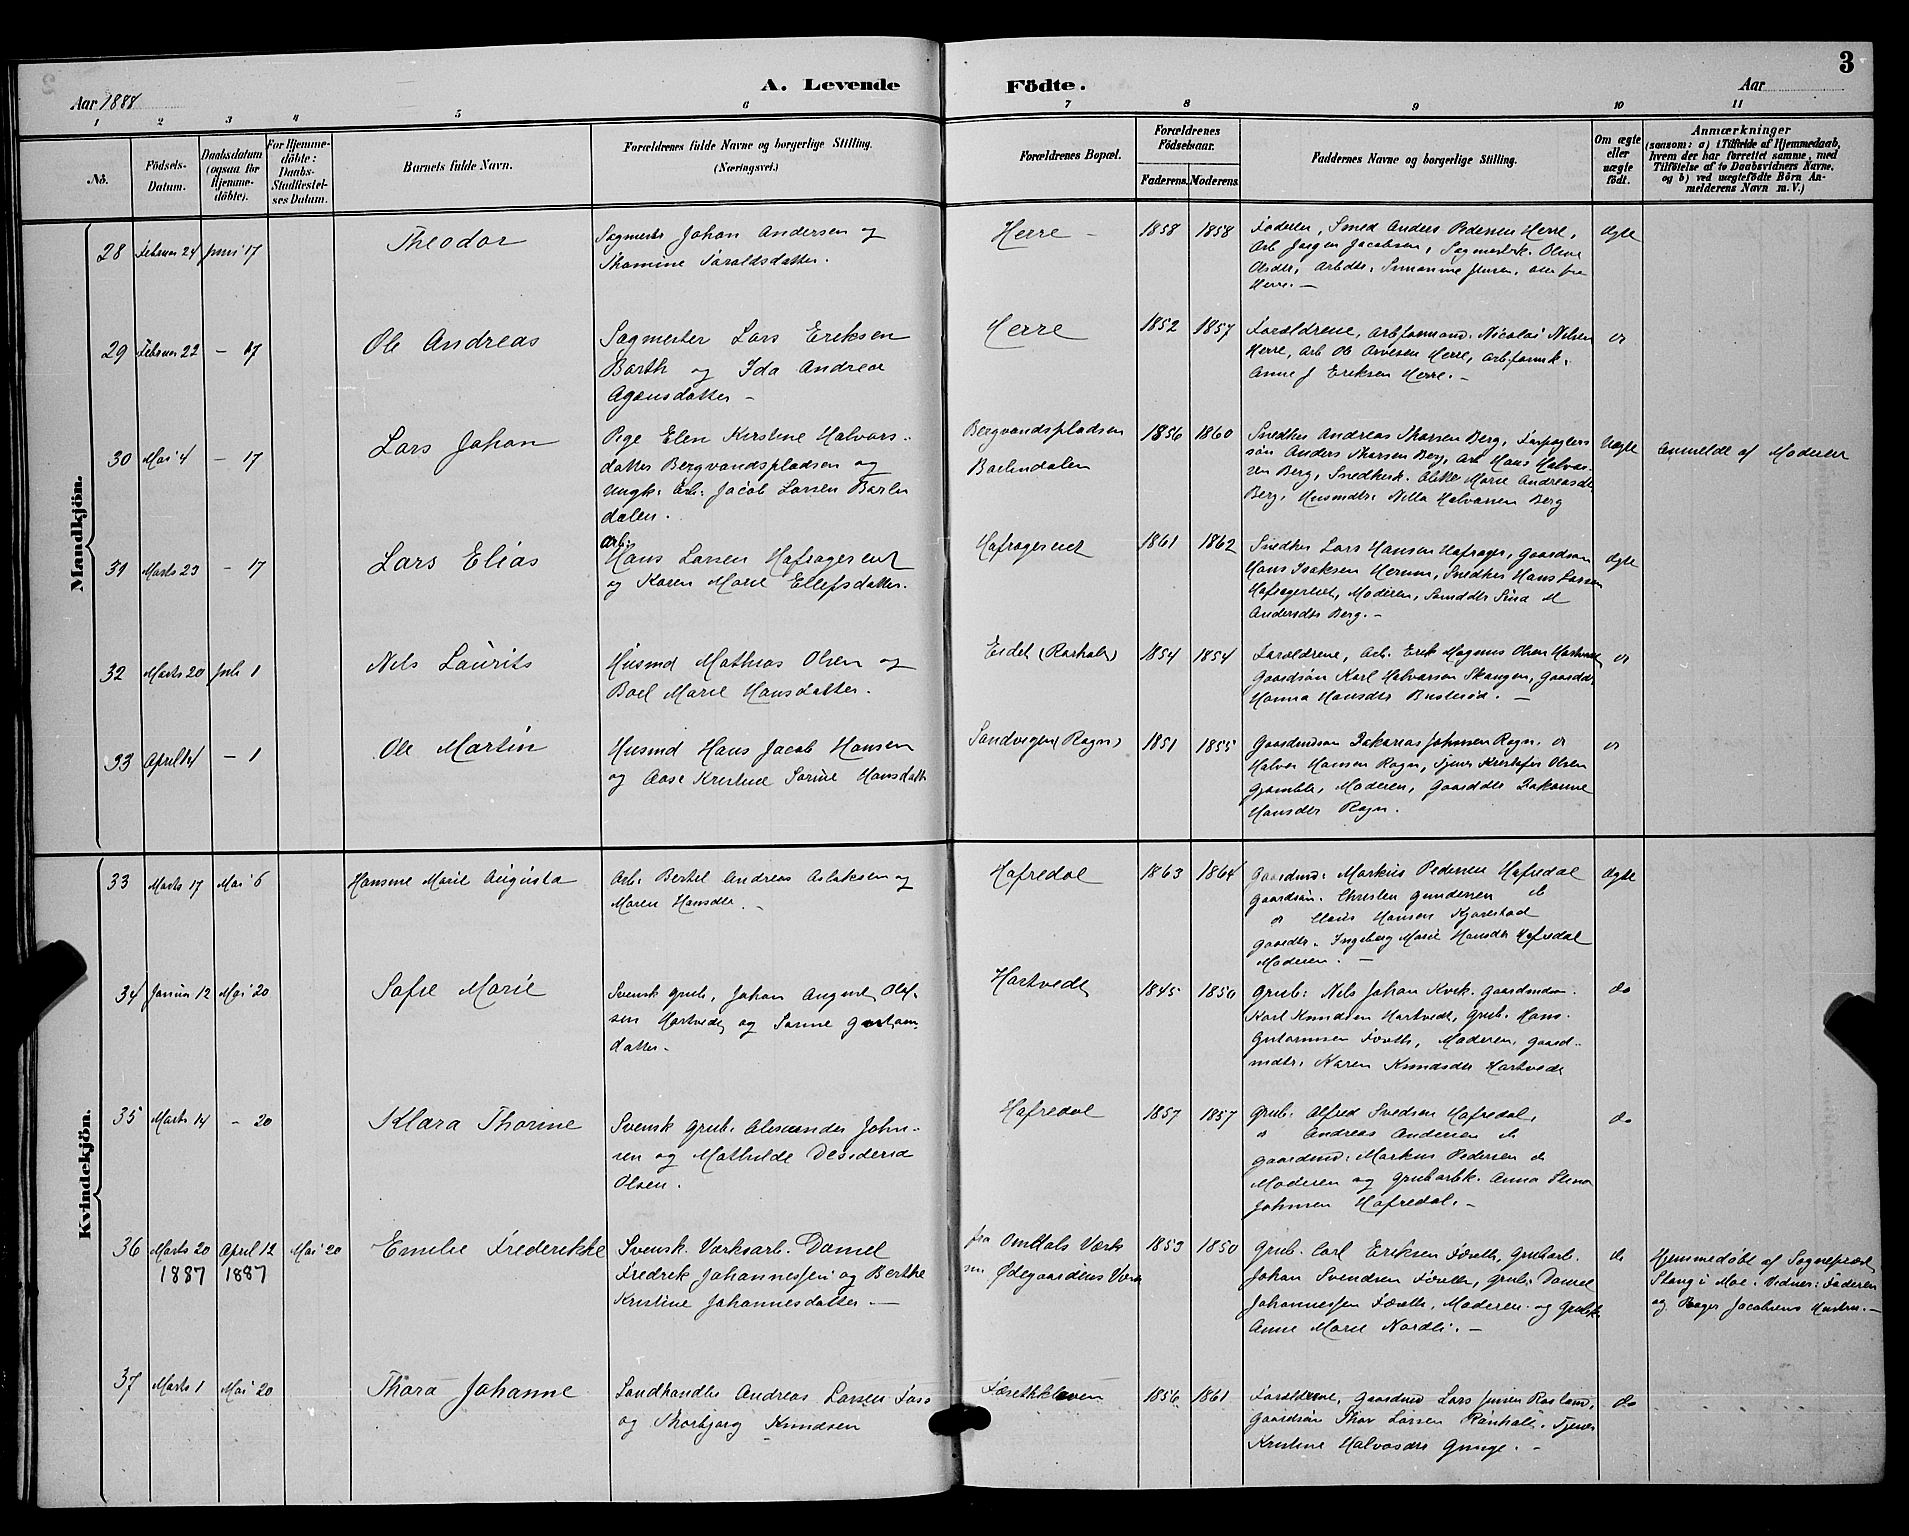 3
Aar 1888
A. Levende
Födte.
Aar
1 2 3 4 5 6 7 8 9 10 11
No.
Födsels-
Datum.
Daabsdatum
(ogsaa for
Hjemme-
döbte).
For Hjemme-
döbte:
Daabs-
Stadfæstel-
ses Datum.
Barnets fulde Navn.
Forældrenes fulde Navne og borgerlige Stilling.
(Næringsvei.)
Forældrenes Bopæl.
Forældrenes
Födselsaar.
Faderens. Moderens.
Faddernes Navne og borgerlige Stilling.
Om ægte
eller
uægte
födt.
Anmærkninger
(saasom: a) i Tilfælde af Hjemmedaab,
hvem der har forrettet samme, med
Tilföielse af to Daabsvidners Navne,
og b) ved uægtefödte Börn An-
melderens Navn m. V.)
Mandkjön.
28 Februar 24 Juni 17
Theodor
Sagmester Johan Andersen og
Thomine Taraldsdatter.
Herre -
1858 1858
Faderen, Smed Anders Pedersen Herre,
Arb Jørgen Jacobsen, Sagmesterk. Oline
Olsdtr, Arbdtr. Simonine Jensen, alle fra
Herre. -
ægte
29 Februar 22 - 17
Ole Andreas
Sagmester Lars Eriksen
Barth og Ida Andrea
Agensdatter -
Herre
1852 1857
Forældrene, Arbformand Nicolai Nilsen
Herre, Arb Ole Arvesen Herre, Arbformk.
Anne J Eriksen Herre. -
"
30 Mai 4 - 17
Lars Johan
Pige Elen Kirstine Halvors-
datter Bergvandspladsen og
Ungk. Arb. Jacob Larsen Barlin
dalen.
Bergvandspladsen
1856 1860
Snedker Andreas Thorsen Berg,
søn Anders Thorsen Berg, Arb Hans Halvor-
sen Berg, Snedkerk. Marie Andreasdtr
Berg, Husmdtr. Halvorsen Berg
Uægte
Anmeldt af Moderen
31 Marts 23 - 17
Lars Elias
Arb.
Hans Larsen Hafragereiet
og Karen Marie Ellefsdatter.
Hafragereiet
1861 1862
Snedker Lars Hansen Hafrager, Gaardsøn
Hans Isaksen Herum, Snedker Hans Larsen
Hafragereiet, Moderen,
Andersdtr Berg. -
ægte
32 Marts 20 Juli 1
Nils Laurits
Husmd Mathias Olsen og
Boel Marie Hansdatter.
Eidet (Rørholt)
1854 1854
Forældrene, Arb. Erik Magnus Olsen Hartvedt
Gaardsøn Karl Halvorsen Skaugen, Gaarddtr
Hanna Hansdtr -
"
33 April 14 - 1
Ole Martin
Husmd Hans Jacob Hansen
og Aase Kristine Sørine Hansdatter
Sandvigen (Rogn)
1851 1855
Gaardmdsøn Zakarias Johnsen Rogn, "
Halvor Hansen Rogn, Tjener Kristofer Olsen
Gjømble, Moderen, Gaarddtr
Hansdtr Rogn.
"
Kvindekjön.
33 Marts 17 Mai 6
Hansine Marie Augusta
Arb. Bertel Andreas Aslaksen og
Maren Hansdtr. -
Hafredal
1863 1864
Gaardmd: Markus Pedersen Hafredal
Gaardsøn. Christen Gundersen do
" Claus Hansen Kjørestad
Gaarddtr. Ingeborg Marie Hansdtr Hafredal
Moderen. -
ægte
34 Januar 12 Mai 20
Sofie Marie
Svensk Grub. Johan August Olef-
sen Hartvedt og Sarine
datter.
Hartvedt
1845 1850
Grub: Nils Johan Kvik. Gaardmdsøn.
Karl Knudsen Hartvedt, Grub. Hans
Gutormsen Førth, Moderen, Gaard-
mdtr. Karen Knudsdtr Hartvedt
do
35 Marts 14 - 20
Klara Thorine
Svensk Grub. Alexander John-
sen og Mathilde Desideria
Olsen.
Hafredal
1857 1857
Grub. Alfred Svedsen Hafredal,
" Andreas Andersen do
Gaardmd: Markus Pedersen do
Moderen og Grubarbk. Anna Stina
Johnsen Hafredal. -
do
36 Marts 20 April 12 Mai 20
1887 1887
Emilie Frederikke
Svensk. Værksarb. Daniel
Fredrek Johannessen og Berthe
Kristine Johannesdatter. -
fra Omdals Værk
Ødegaardens Værk
1853 1850
Grub. Carl Eriksen Førth, Grubarb.
Johan Svendsen Førth, Grub. Daniel
Johannessen Førth, Moderen og Grubk.
Anne Marie Nordli. -
do
Hjemmedøbt af Sognepræst
Stang i Moe. Vidner: Faderen
og Bager Jacobsens Hustru. -
37 Marts 1 Mai 20
Thora Johanne
Landhandler Andreas Larsen
og Thorbjørg Knudsen
Førethkleven
1856 1861
Forældrene, Gaardmd Lars Jensen
Gaardsøn Thor Larsen Rønholt. Tjener
Kristine Halvorsdtr -
do